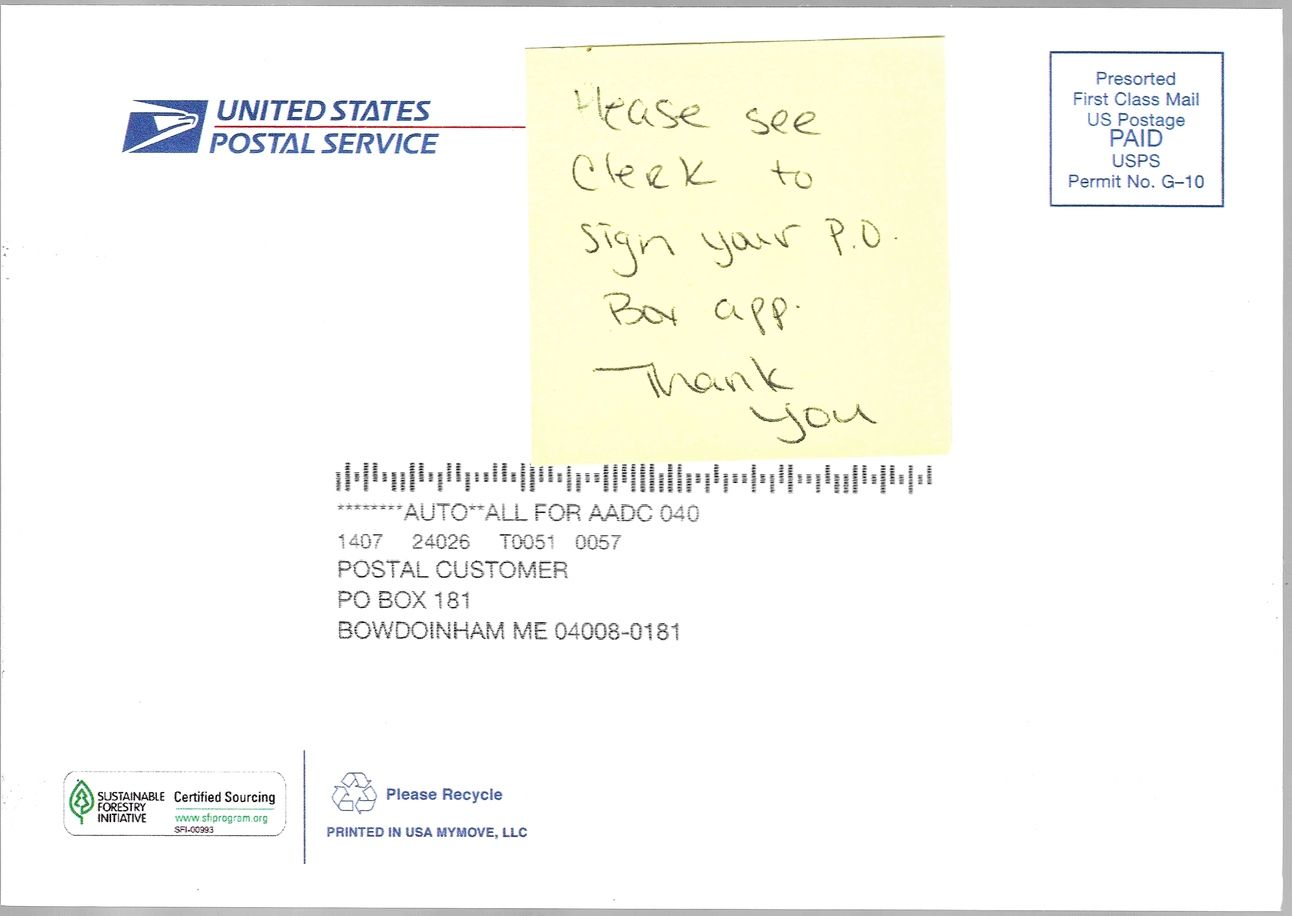 UNITED STATES
POSTAL SERVICE
Please see
Clerk to
sign your P.O.
Box app.
Thank
you
Presorted
First Class Mail
US Postage
PAID
USPS
Permit No. G–10
********AUTO**ALL FOR AADC 040
1407 24026 T0051 0057
POSTAL CUSTOMER
PO BOX 181
BOWDOINHAM ME 04008-0181
SUSTAINABLE
FORESTRY
INITIATIVE
Certified Sourcing
www.sfiprogram.org
SFI-00993
Please Recycle
PRINTED IN USA MYMOVE, LLC